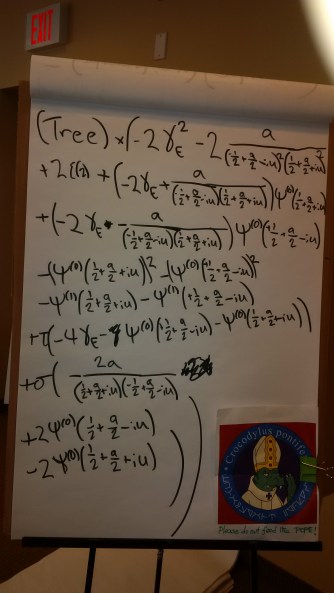 EXIT
(Tree) × (-2γ_E^2 - 2 a/((-1/2+a/2-iu)^2(1/2+a/2+iu)^2
+2ζ(2) + (-2γ_E + a/((-1/2+a/2-iu)(1/2+a/2+iu)))ψ^(0)(1/2+a/2+iu)
+(-2γ_E - a/((-1/2+a/2-iu)(1/2+a/2+iu)))ψ^(0)(+1/2+a/2-iu)
-(ψ^(0)(1/2+a/2+iu))^2 -(ψ^(0)(+1/2+a/2-iu))^2
-ψ^(1)(1/2+a/2+iu) - ψ^(1)(+1/2+a/2-iu)
+τ(-4γ_E - ψ^(0)(+1/2+a/2-iu) - ψ^(0)(1/2+a/2+iu))
+σ( - 2a/((1/2+a/2+iu)(-1/2+a/2-iu))
+2ψ^(0)(1/2+a/2-iu)
-2ψ^(0)(1/2+a/2+iu) ))
Crocodylus pontifex
Please do not feed the POPE!